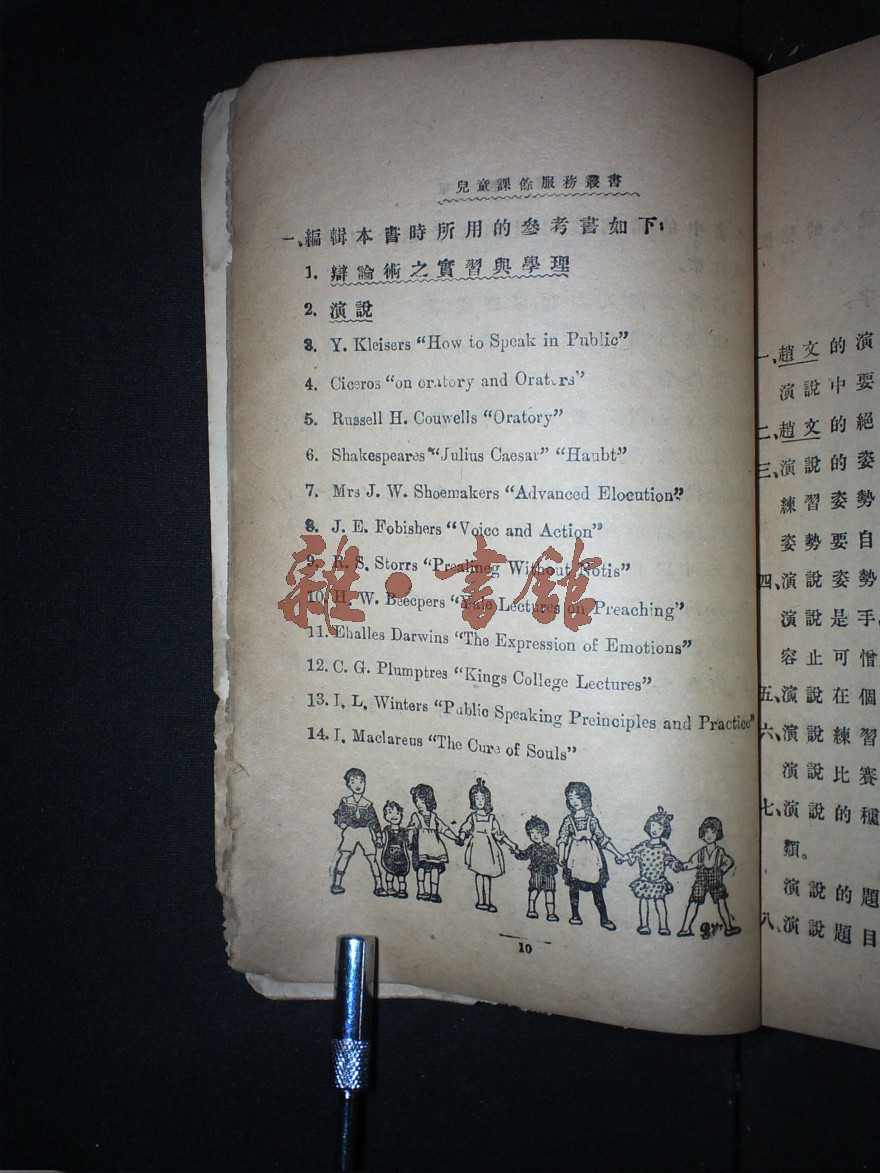 兒童課餘服務叢書
一、編輯本書時所用的參考書如下：
1. 辯論術之實習與學理
2. 演說
3. Y. Kleisers “How to Speak in Public”
4. Ciceros “on oratory and Orators”
5. Russell H. Couwells “Oratory”
6. Shakespeares “Julius Caesar” “Haubt”
7. Mrs J. W. Shoemakers “Advanced Elocution”
8. J. E. Fobishers “Voice and Action”
9. R. S. Storrs “Prealineg Without Notis”
10. H. W. Beecpers “Yale Lectures on Preaching”
11. Ehalles Darwins “The Expression of Emotions”
12. C. G. Plumptres “Kings College Lectures”
13. I. L. Winters “Public Speaking Preinciples and Practice”
14. J. Maclareus “The Cure of Souls”
10
雜·書館
一、趙文的演
演說中要
二、趙文的絕
三、演說的姿
練習姿勢
姿勢要自
四、演說姿勢
演說是手、
容止可憎
五、演說在個
六、演說練習
演說比賽
七、演說的種
類。
演說的題
八、演說題目